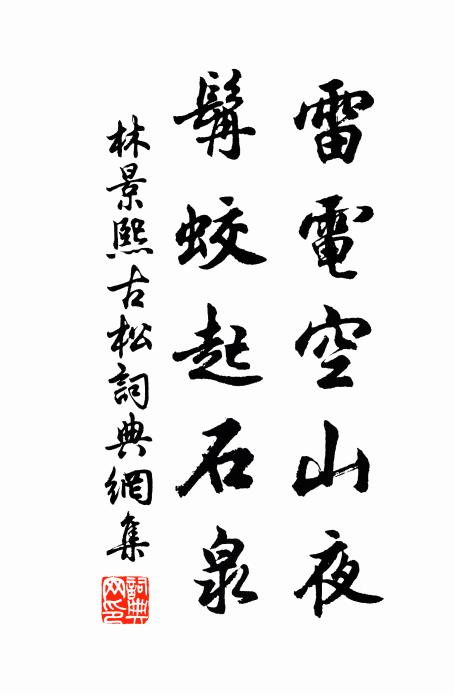 雷電空山夜
髯蛟起石泉
林景熙古松詞典網集
詞典
网印